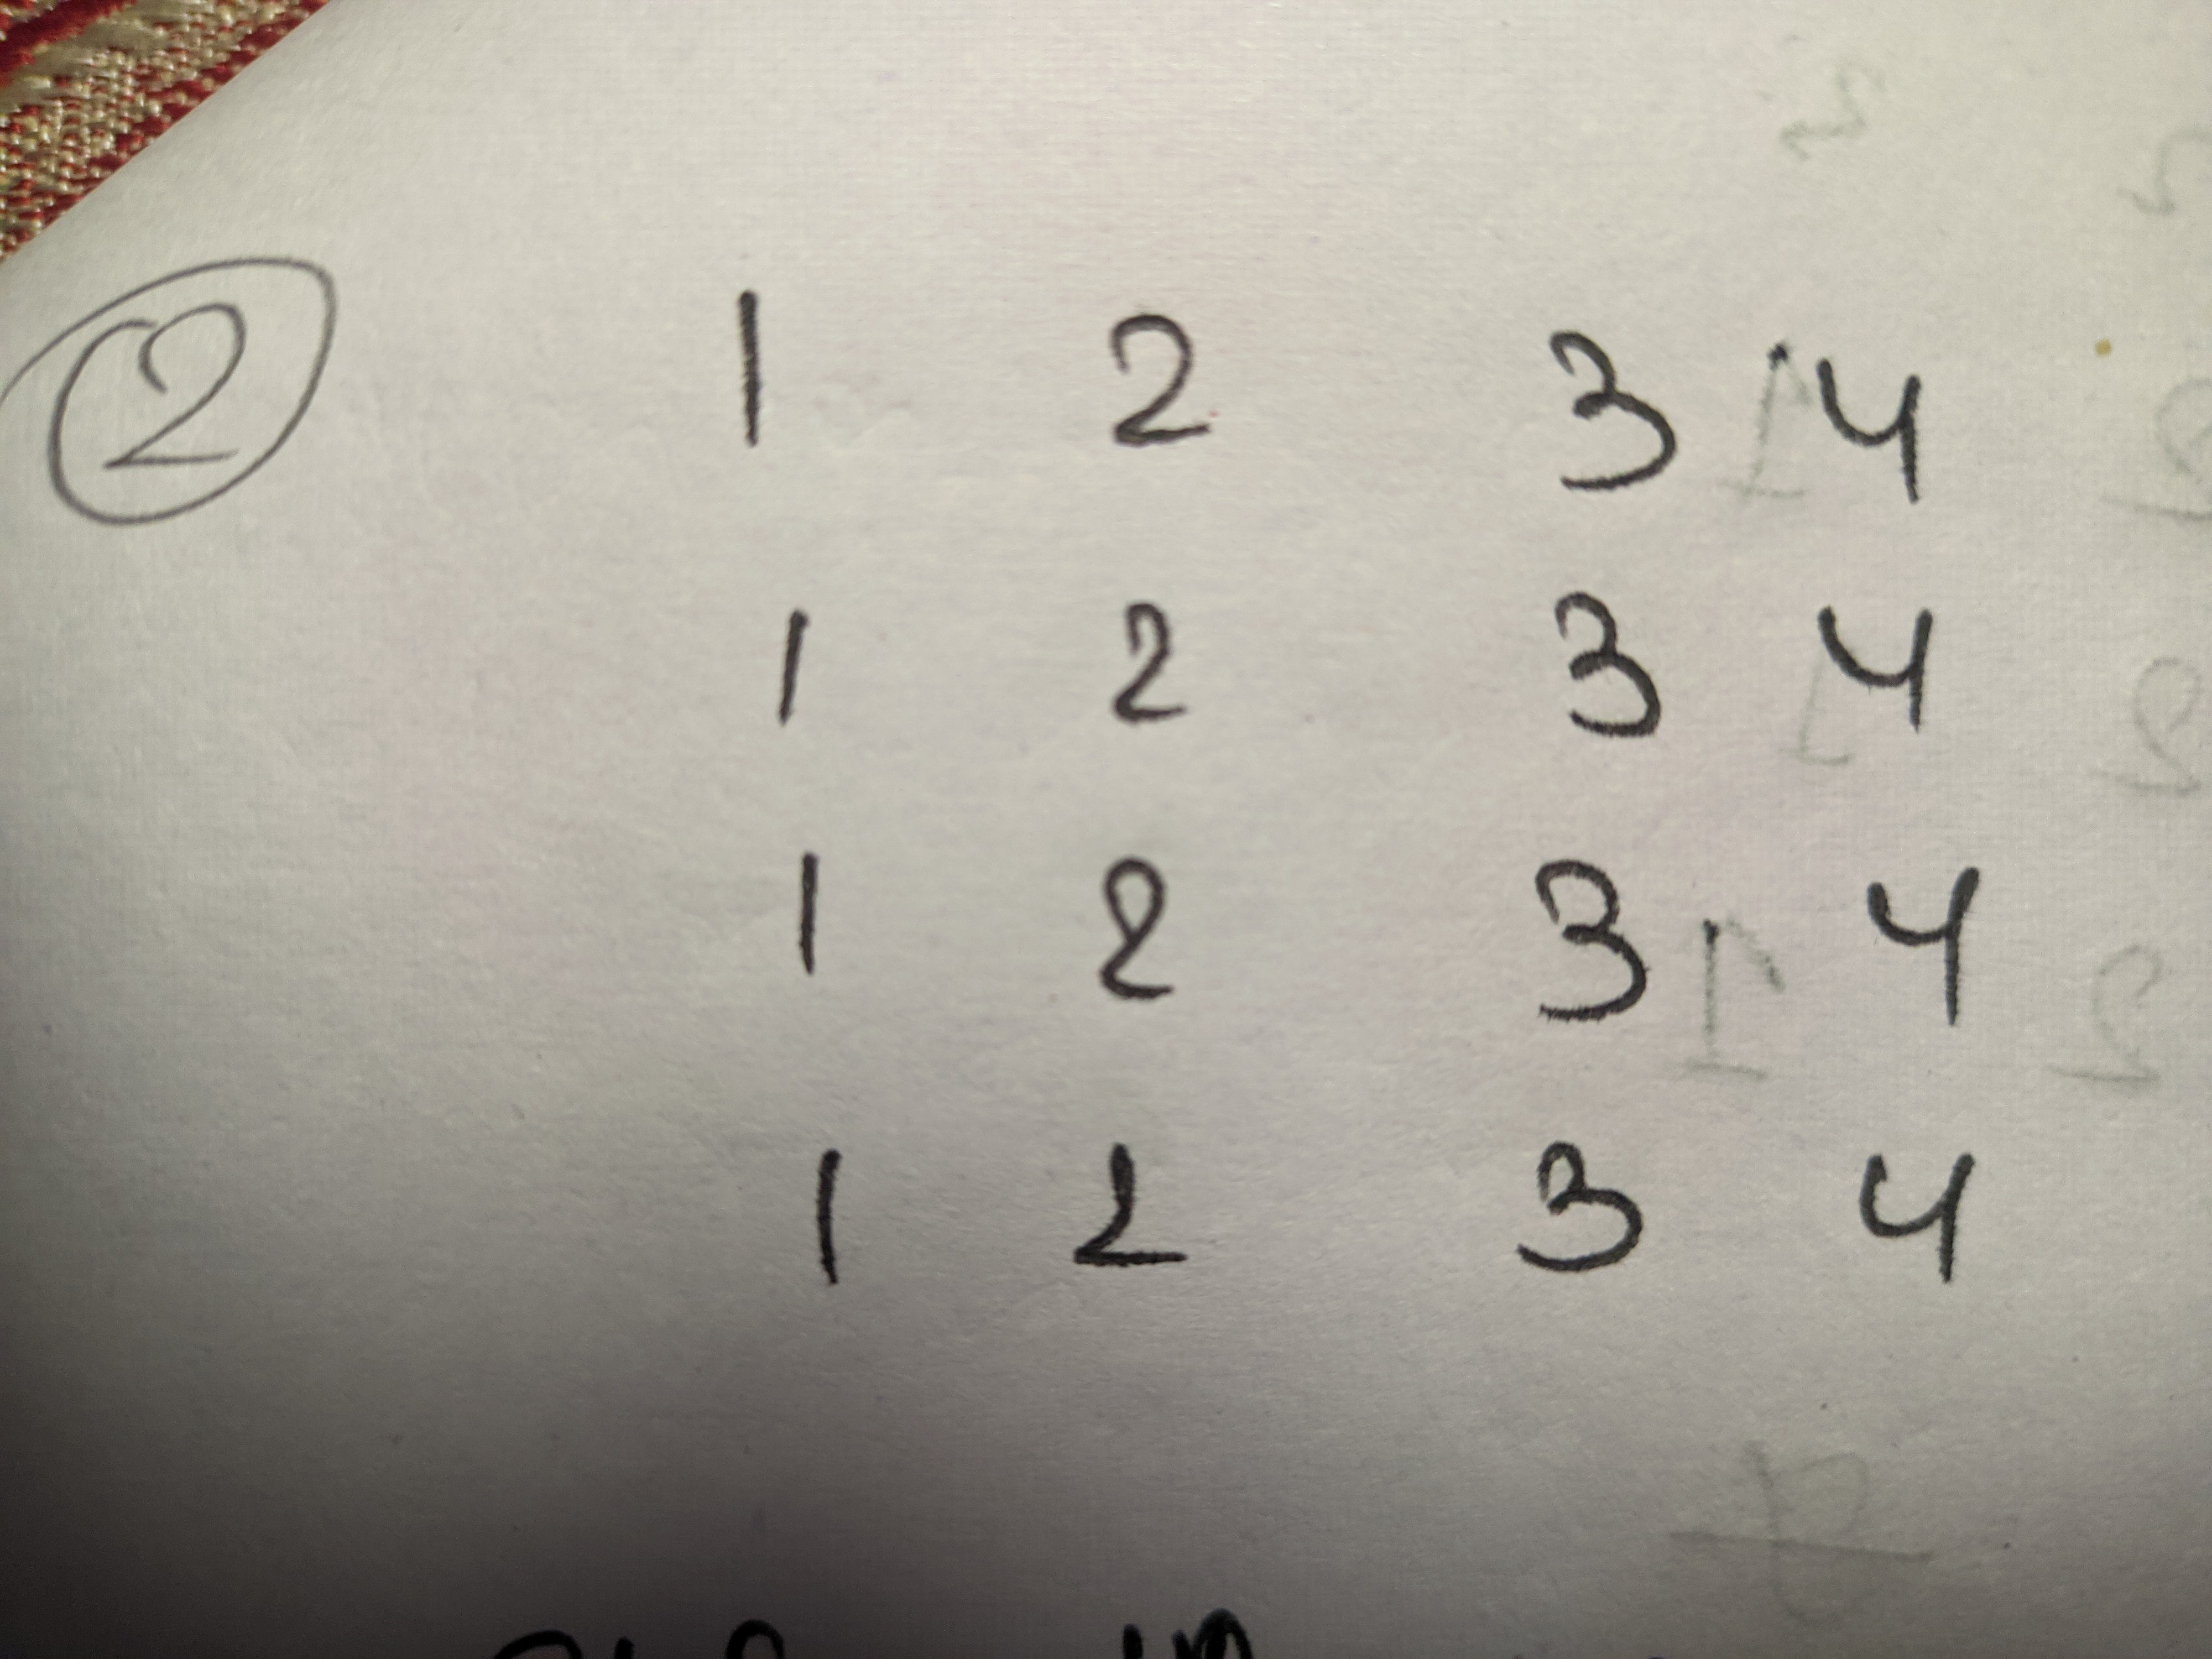 ② 1 2 3 4
1 2 3 4
1 2 3 4
1 2 3 4